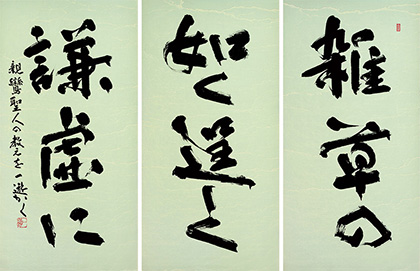 雑草の
如く逞しく
謙虚に
親鸞聖人の教えを 一遊かく